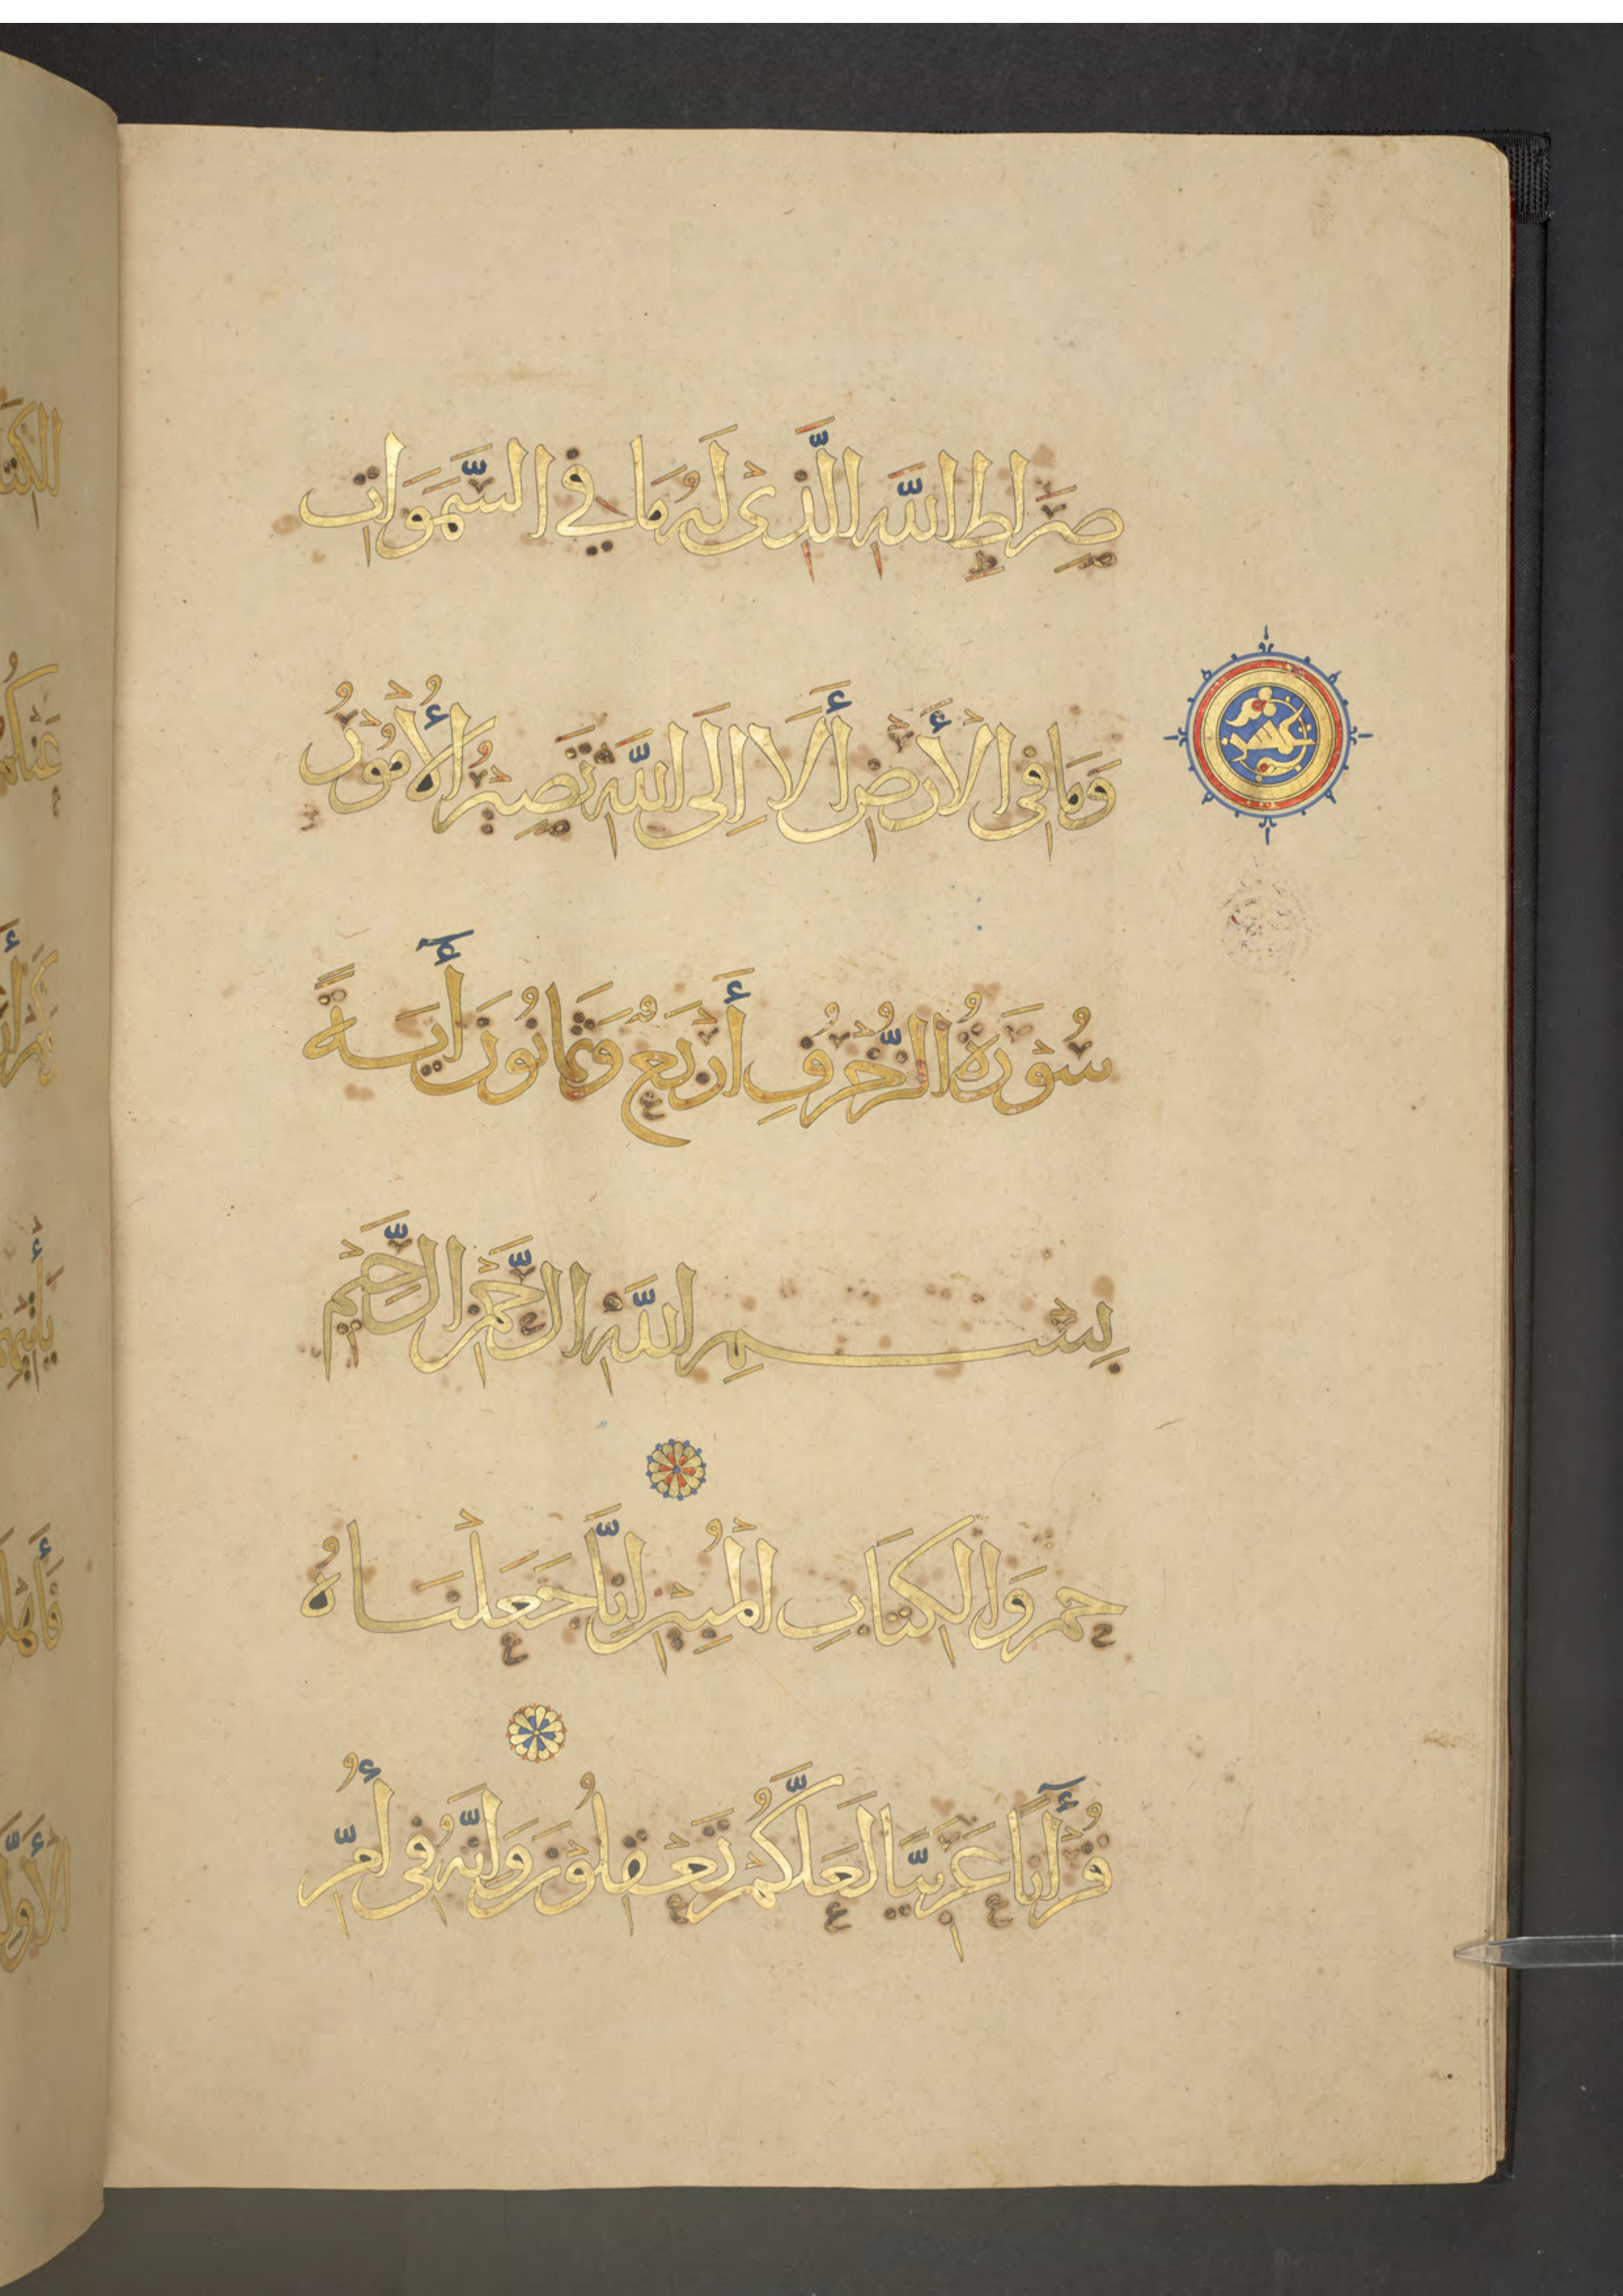 صِرَاطِ اللَّهِ الَّذِى لَهُ مَا فِي السَّمَوَاتِ
وَمَا فِى الْأَرْضِ أَلَا إِلَى اللَّهِ تَصِيْرُ الْأُمُوْرُ
سُوْرَةُ الزُّخْرُفِ أَرْبَعٌ وَثَمَانُونَ أٓيَةً
بِسْمِ اللَّهِ الرَّحْمَنِ الرَّحِيْمِ
حم وَالْكِتَابِ الْمُبِيْنِ إِنَّا جَعَلْنَاهُ
قُرْأٓنًا عَرَبِيًّا لَعَلَّكُمْ تَعْقِلُوْنَ وَإِنَّهُ فِى أُمِّ